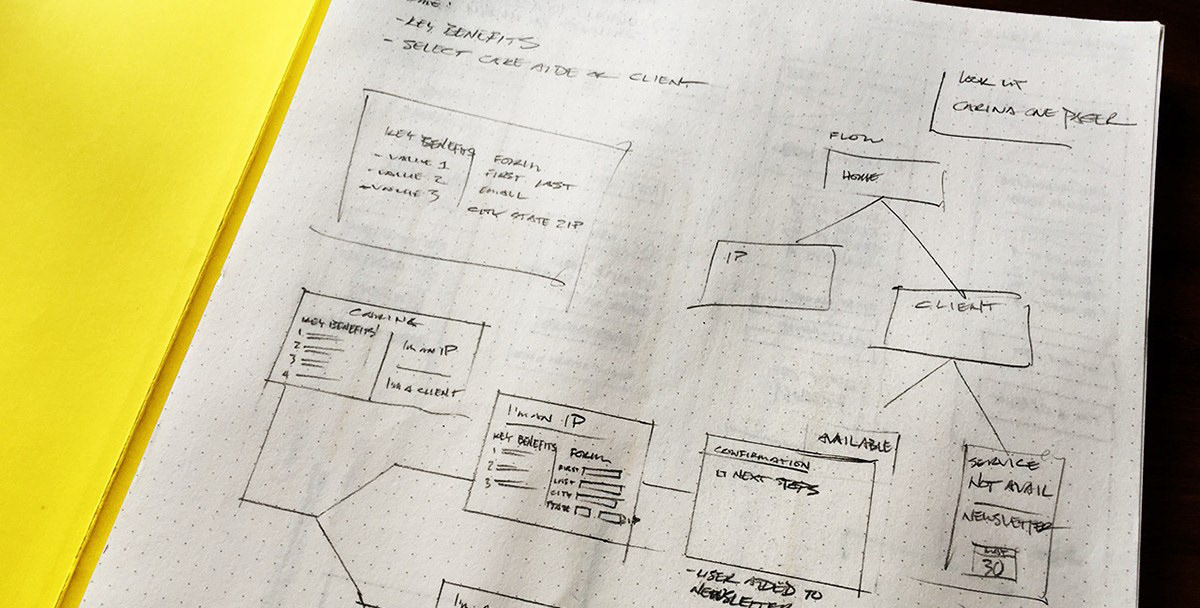 - KEY BENEFITS
- SELECT CARE AIDE OR CLIENT
LOOK AT
CARINA ONE PAGER
KEY BENEFITS
- VALUE 1
- VALUE 2
- VALUE 3
FORM
FIRST LAST
EMAIL
CITY STATE ZIP
FLOW
HOME
IP
CLIENT
AVAILABLE
SERVICE
NOT AVAIL
NEWSLETTER
30
KEY BENEFITS
1
2
3
4
I'M AN IP
I'M A CLIENT
I'M AN IP
KEY BENEFITS
1
2
3
FORM
FIRST
LAST
CITY
STATE
ZIP
CONFIRMATION
NEXT STEPS
- USER ADDED TO
NEWSLETTER